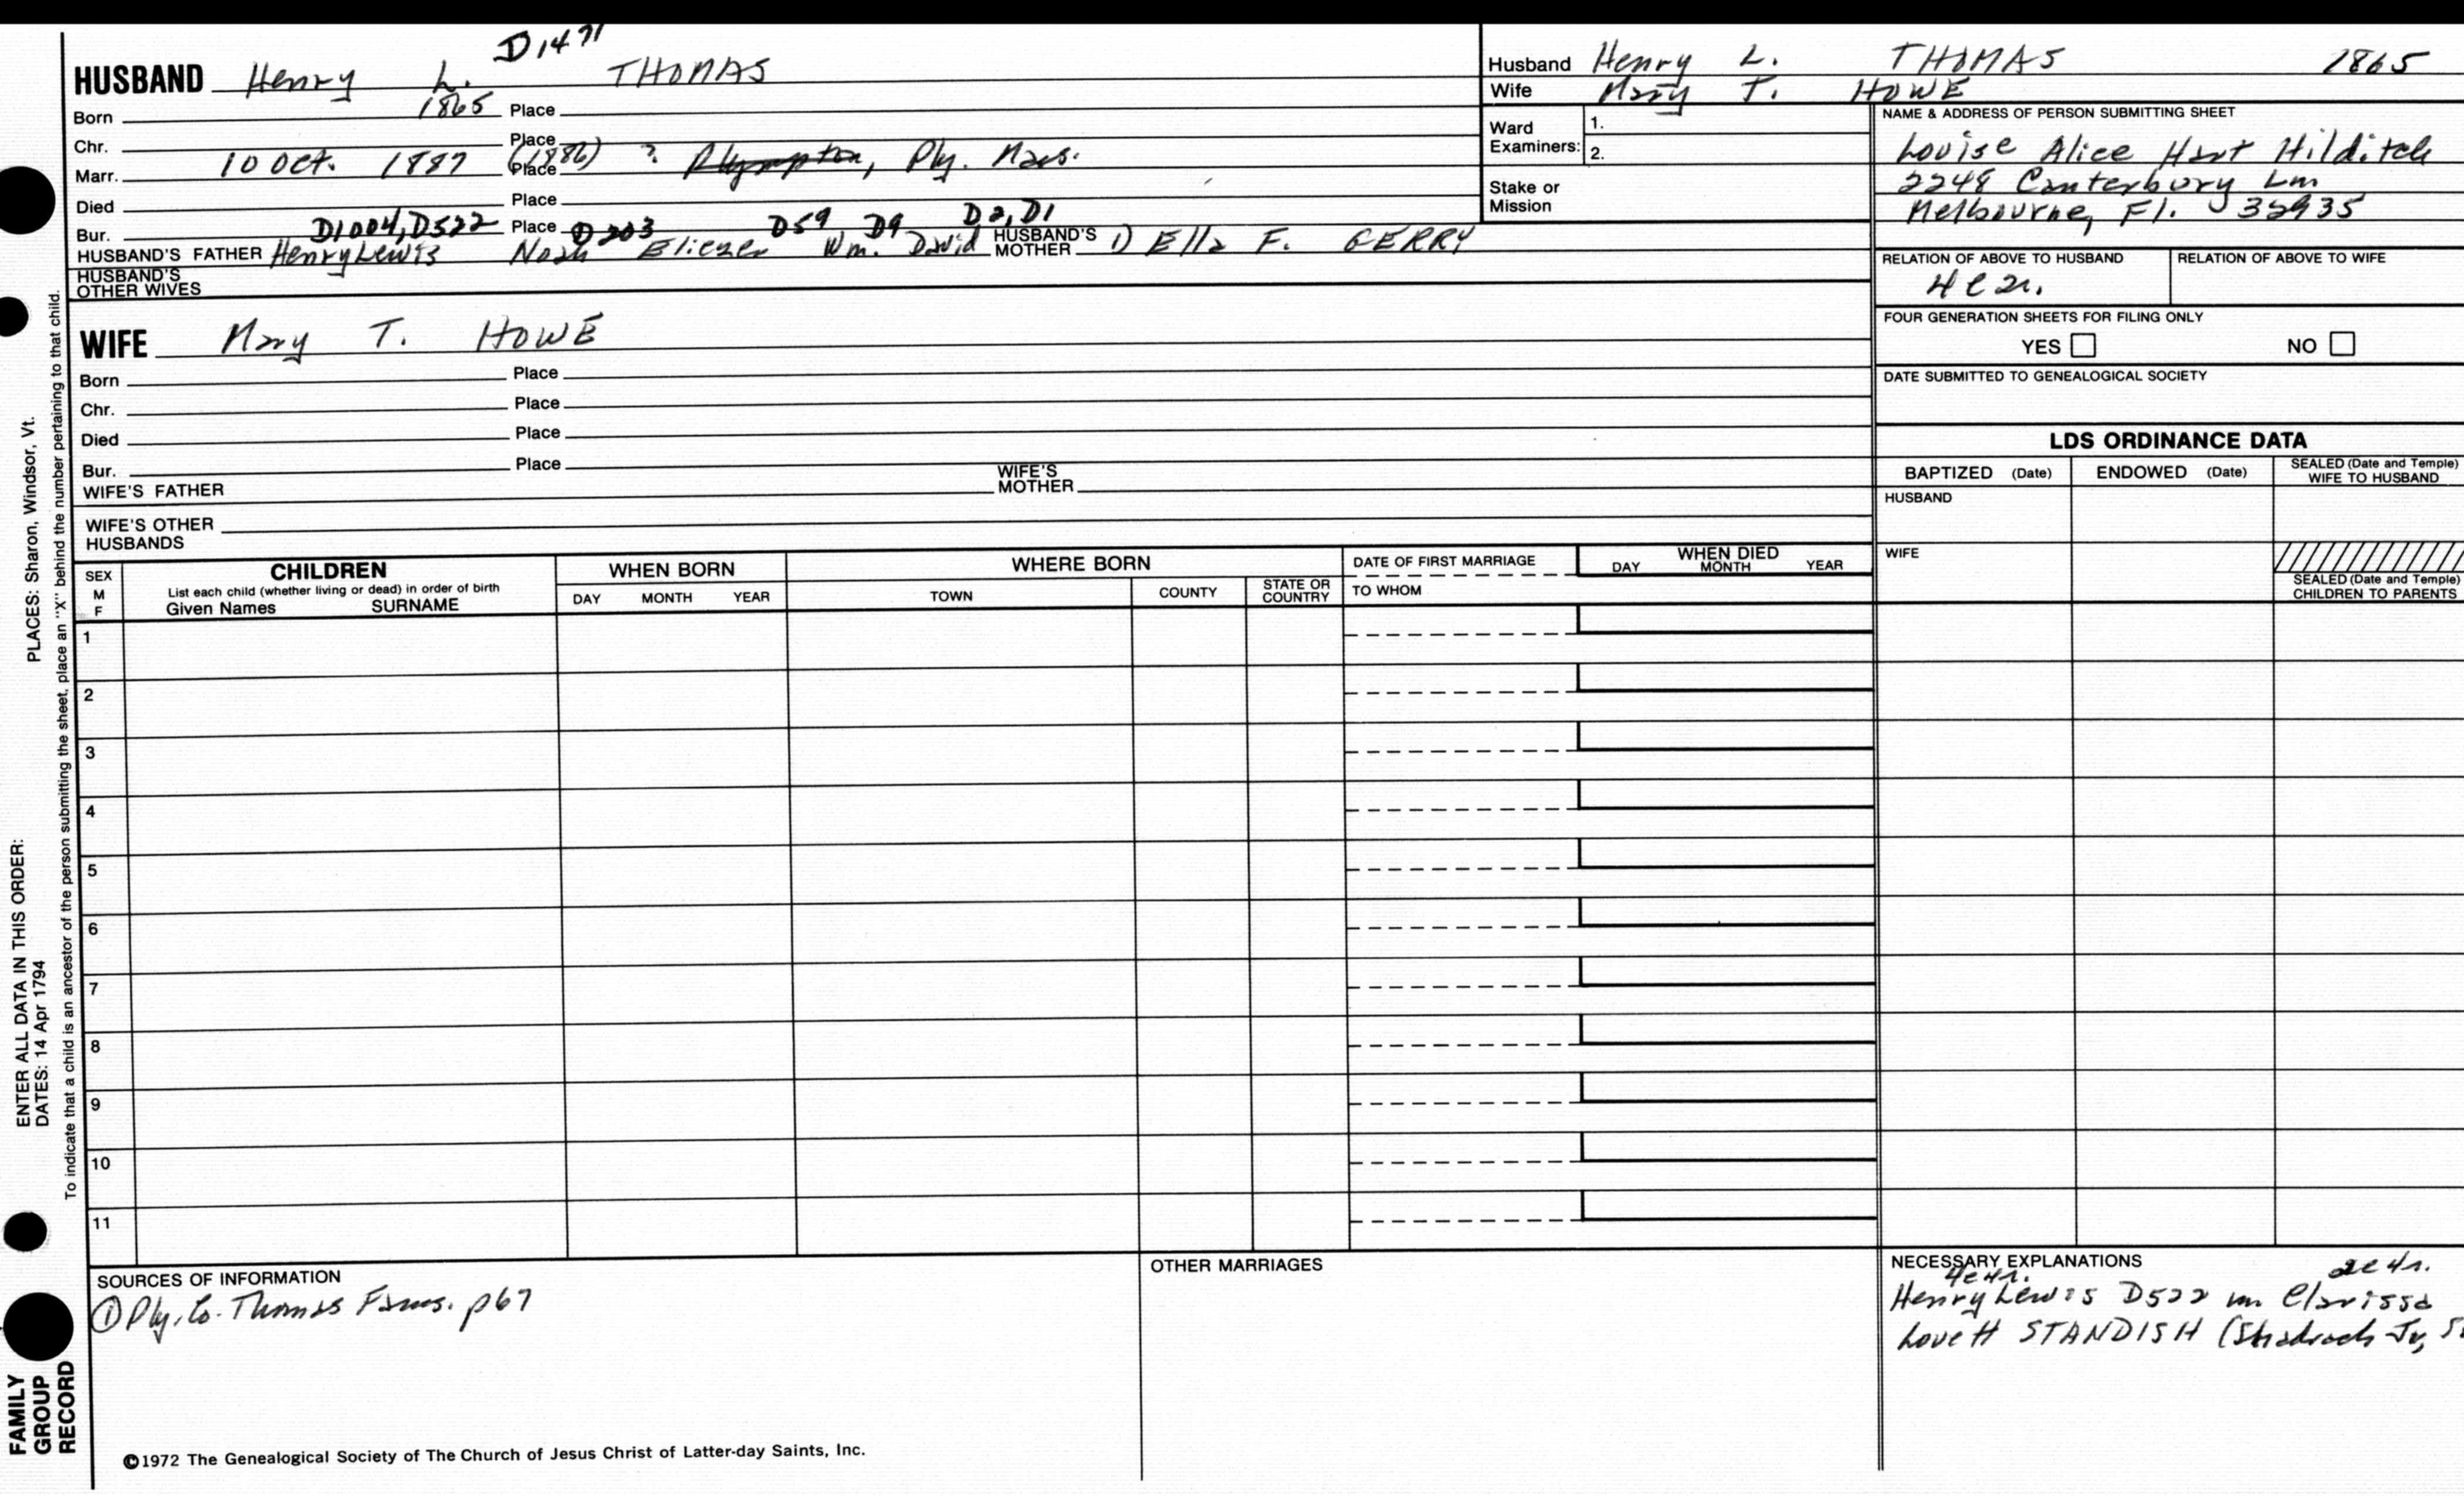 D1471
HUSBAND Henry L. THOMAS
Born 1865 Place
Chr. Place
Marr. 10 Oct. 1887 (1886) ? Place Plympton, Ply. Mass.
Died Place
Bur. D1004, D522 Place D203 D59 D9 D2, D1
HUSBAND'S FATHER Henry Lewis Noah Eliezer Wm. David HUSBAND'S MOTHER 1) Ella F. GERRY
HUSBAND'S OTHER WIVES
WIFE Mary T. HOWE
Born Place
Chr. Place
Died Place
Bur. Place
WIFE'S FATHER WIFE'S MOTHER
WIFE'S OTHER HUSBANDS
Husband Henry L. THOMAS 1865
Wife Mary T. HOWE
Ward Examiners: 1.
2.
Stake or Mission
NAME & ADDRESS OF PERSON SUBMITTING SHEET
Louise Alice Hart Hilditch
2248 Canterbury Ln
Melbourne, Fl. 32935
RELATION OF ABOVE TO HUSBAND RELATION OF ABOVE TO WIFE
FOUR GENERATION SHEETS FOR FILING ONLY
YES NO
DATE SUBMITTED TO GENEALOGICAL SOCIETY
LDS ORDINANCE DATA
BAPTIZED (Date) ENDOWED (Date) SEALED (Date and Temple) WIFE TO HUSBAND
HUSBAND
WIFE
SEALED (Date and Temple) CHILDREN TO PARENTS
SEX M F
CHILDREN
List each child (whether living or dead) in order of birth
Given Names SURNAME
WHEN BORN
DAY MONTH YEAR
WHERE BORN
TOWN COUNTY STATE OR COUNTRY
DATE OF FIRST MARRIAGE
TO WHOM
WHEN DIED
DAY MONTH YEAR
1
2
3
4
5
6
7
8
9
10
11
SOURCES OF INFORMATION
① Ply. Co. Thomas Fams. p67
OTHER MARRIAGES
NECESSARY EXPLANATIONS
4c4r. 2c4r.
Henry Lewis D522 m. Clarissa
Lovett STANDISH (Shadrach Jr,
©1972 The Genealogical Society of The Church of Jesus Christ of Latter-day Saints, Inc.
PLACES: Sharon, Windsor, Vt.
ENTER ALL DATA IN THIS ORDER:
DATES: 14 Apr 1794
To indicate that a child is an ancestor of the person submitting the sheet, place an "X" behind the number pertaining to that child.
FAMILY
GROUP
RECORD